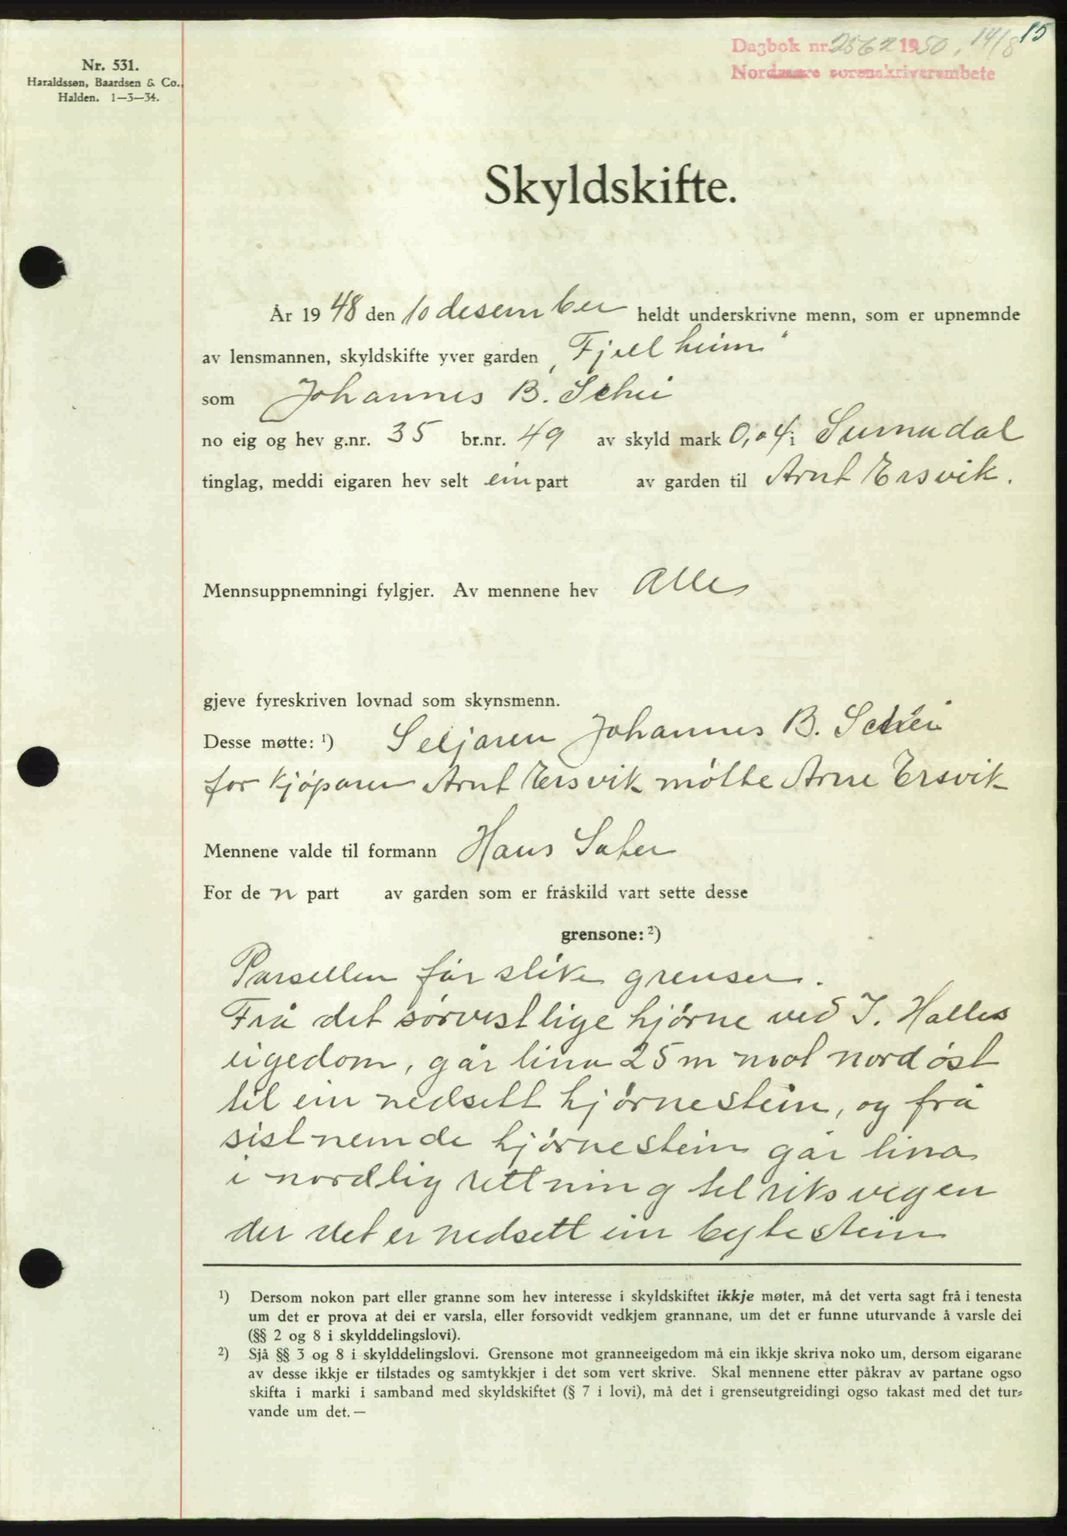 15
Dagbok nr. 2562 1950. 14/8
Nordmøre sorenskriverembete
Nr. 531.
Haraldssøn, Baardsen & Co.
Halden. 1—3—34.
Skyldskifte.
År 1948 den 10 desember heldt underskrivne menn, som er upnemnde
av lensmannen, skyldskifte yver garden „Fjellheim"
som Johannes B. Schei
no eig og hev g.nr. 35 br.nr. 49 av skyld mark 0,04 i Surnadal
tinglag, meddi eigaren hev selt ein part av garden til Arnt Ersvik.
Mennsuppnemningi fylgjer. Av mennene hev Alle
gjeve fyreskriven lovnad som skynsmenn.
Desse møtte: ¹) Seljaren Johannes B. Schei
for kjøparen Arnt Ersvik møtte Arne Ersvik
Mennene valde til formann Hans Sæter
For de n part av garden som er fråskild vart sette desse
grensone: ²)
Parsellen får slike grenser.
Frå det sørvestlige hjørne ved I. Halles
eigedom, går lina 25 m mot nordøst
til ein nedsett hjørnestein, og frå
sistnemde hjørnestein går lina
i nordlig rettning til riksvegen
der det er nedsett ein bytestein
¹) Dersom nokon part eller granne som hev interesse i skyldskiftet ikkje møter, må det verta sagt frå i tenesta
um det er prova at dei er varsla, eller forsovidt vedkjem grannane, um det er funne uturvande å varsle dei
(§§ 2 og 8 i skylddelingslovi).
²) Sjå §§ 3 og 8 i skylddelingslovi. Grensone mot granneeigedom må ein ikkje skriva noko um, dersom eigarane
av desse ikkje er tilstades og samtykkjer i det som vert skrive. Skal mennene etter påkrav av partane ogso
skifta i marki i samband med skyldskiftet (§ 7 i lovi), må det i grenseutgreidingi ogso takast med det tur-
vande um det. —